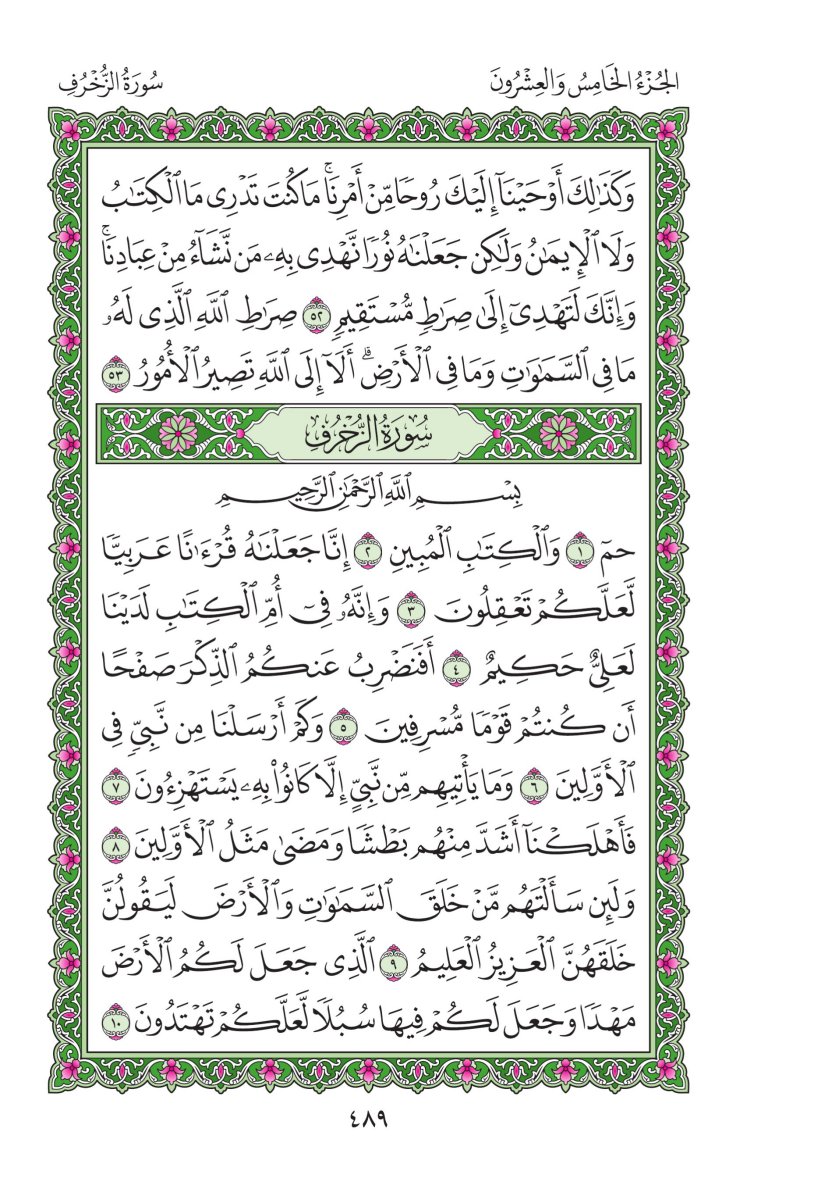 الجُزْءُ الخَامِسُ وَالعِشْرُونَ
سُورَةُ الزُّخْرُفِ
وَكَذَٰلِكَ أَوْحَيْنَآ إِلَيْكَ رُوحًا مِّنْ أَمْرِنَاۚ مَا كُنتَ تَدْرِى مَا ٱلْكِتَٰبُ
وَلَا ٱلْإِيمَٰنُ وَلَٰكِن جَعَلْنَٰهُ نُورًا نَّهْدِى بِهِۦ مَن نَّشَآءُ مِنْ عِبَادِنَاۚ
وَإِنَّكَ لَتَهْدِىٓ إِلَىٰ صِرَٰطٍ مُّسْتَقِيمٍ ٥٢ صِرَٰطِ ٱللَّهِ ٱلَّذِى لَهُۥ
مَا فِى ٱلسَّمَٰوَٰتِ وَمَا فِى ٱلْأَرْضِۗ أَلَآ إِلَى ٱللَّهِ تَصِيرُ ٱلْأُمُورُ ٥٣
سُورَةُ الزُّخْرُفِ
بِسْمِ ٱللَّهِ ٱلرَّحْمَٰنِ ٱلرَّحِيمِ
حمٓ ١ وَٱلْكِتَٰبِ ٱلْمُبِينِ ٢ إِنَّا جَعَلْنَٰهُ قُرْءَٰنًا عَرَبِيًّا
لَّعَلَّكُمْ تَعْقِلُونَ ٣ وَإِنَّهُۥ فِىٓ أُمِّ ٱلْكِتَٰبِ لَدَيْنَا
لَعَلِىٌّ حَكِيمٌ ٤ أَفَنَضْرِبُ عَنكُمُ ٱلذِّكْرَ صَفْحًا
أَن كُنتُمْ قَوْمًا مُّسْرِفِينَ ٥ وَكَمْ أَرْسَلْنَا مِن نَّبِىٍّ فِى
ٱلْأَوَّلِينَ ٦ وَمَا يَأْتِيهِم مِّن نَّبِىٍّ إِلَّا كَانُوا۟ بِهِۦ يَسْتَهْزِءُونَ ٧
فَأَهْلَكْنَآ أَشَدَّ مِنْهُم بَطْشًا وَمَضَىٰ مَثَلُ ٱلْأَوَّلِينَ ٨
وَلَئِن سَأَلْتَهُم مَّنْ خَلَقَ ٱلسَّمَٰوَٰتِ وَٱلْأَرْضَ لَيَقُولُنَّ
خَلَقَهُنَّ ٱلْعَزِيزُ ٱلْعَلِيمُ ٩ ٱلَّذِى جَعَلَ لَكُمُ ٱلْأَرْضَ
مَهْدًا وَجَعَلَ لَكُمْ فِيهَا سُبُلًا لَّعَلَّكُمْ تَهْتَدُونَ ١٠
٤٨٩